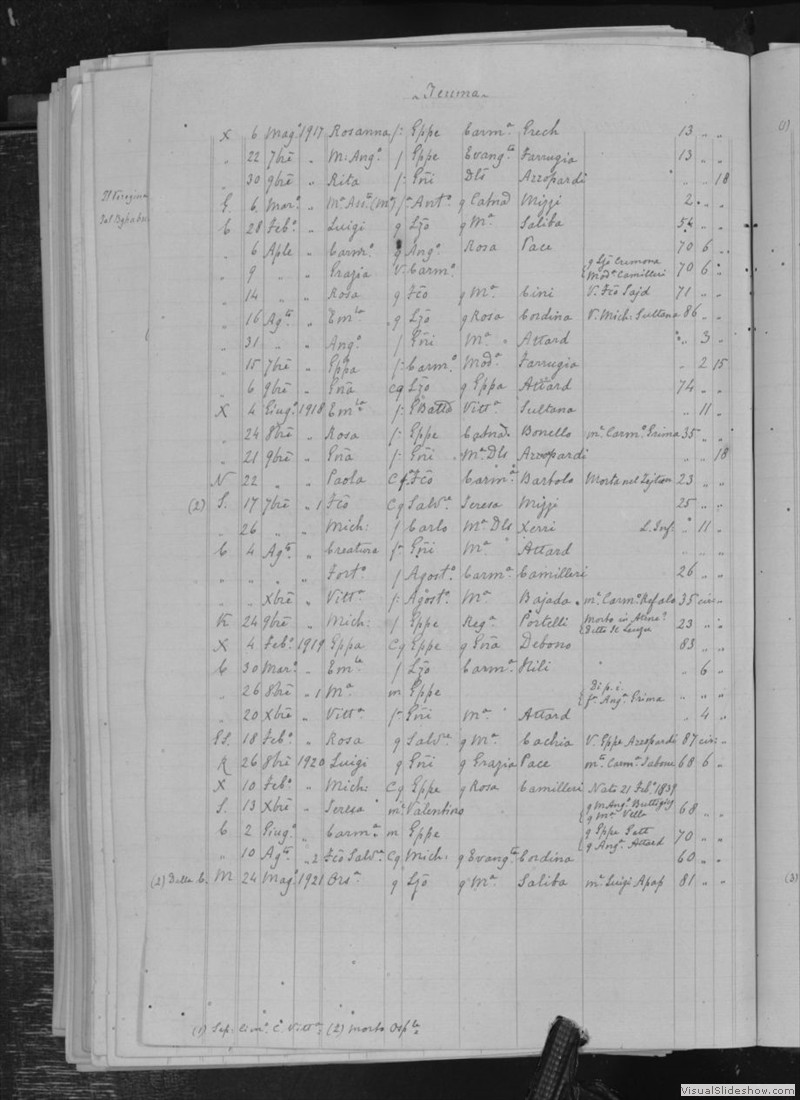 Teuma
X 6 Mag.o 1917 Rosanna f. Eppe Carm.a Grech 13 " "
" 22 7bre " M. Ang.a f Eppe Evang.ta Farrugia 13 " "
" 30 9bre " Rita f. Gñi Dls Azzopardi " " 18
6 Mar.o " Ant.o g Catnã Mizzi 2 " "
C 28 Feb.o " Luigi g Ljo g M.a Saliba 54 " "
" 6 Aple " Carm.o g Ang.o Rosa Pace 70 6 "
" 9 " " Grazia V. Carm.o g Ljo Cremona Mad.a Camilleri 70 6 "
" 14 " " Rosa g Fco g M.a Cini V. Fco Sajd 71 " "
" 16 Ag.to " Em.la g Ljo g Rosa Cordina V. Mich: Sultana 86 " "
" 31 " " Ang.o f Gñi M.a " Attard " 3 "
" 15 7bre " Eppa f. Carm.o Mad.a Farrugia " 2 15
" 6 9bre " Gnã cg Ljo g Eppa Attard 74 " "
X 4 Giug.o 1918 Em.la f. GBatta Vitt.a Sultana " 11 "
" 24 8bre " Rosa f. Eppe Catnã Bonello m. Carm.o Grima 35 " "
" 21 9bre " Gnã f. Gñi M.a Dls Azzopardi " " 18
N 22 " " Paola C f. Fco Carm.a Barbolo Morta nel Zejtun 23 " "
(2) S. 17 7bre " 1 Fco Cg Salv.e Teresa Mizzi 25 " "
" 26 " " Mich: f Carlo M.a Dls Xerri L. Inf: " 11 "
C 4 Ag.to " Creatura f. Gñi M.a Attard " " "
" " " " Fort.o f Agost.o Carm.a Camilleri 26 " "
" " Xbre " Vitt.a f. Agost.o M.a Bajada m. Carm.o Refalo 35 circ "
24 9bre " Mich: f Eppe Reg.a Portelli Morto in 23 " "
X 4 Feb.o 1919 Eppa Cg Eppe g Gnã Debono 83 " "
C 30 Mar.o " Em.la f Ljo Carm.a Hili " 6 "
" 26 8bre " 1 M.a m Eppe Di p. i. f. Ang.o Grima " " "
" 20 Xbre " Vitt.a f. Gñi M.a Attard " 4 "
SS. 18 Feb.o " Rosa g Salv.e g M.a Cachia V. Eppe Azzopardi 87 circ "
R 26 8bre 1920 Luigi g Gñi g Grazia Pace m. Carm.a Sabone 68 6 "
X 10 Feb.o " Mich: Cg Eppe g Rosa Camilleri Nato 21 Feb.o 1839
S. 13 Xbre " Teresa m. Valentino g M Ang.o Buttigieg g M.a Vella 68 " "
C 2 Giug.o " Carm.a m Eppe g Eppe Gatt g Ang.a Attard 70 " "
" 10 Ag.to " 2 Fco Salv.e Cg Mich: g Evang.ta Cordina 60 " "
(2) Della C. M 24 Mag.o 1921 Ors.a g Ljo g M.a Saliba m. Luigi Apap 81 " "
(1) Sep: Cim.o C. Vitt.a (2) Morto Osp.le
(1)
(3)
VisualSlideshow.com